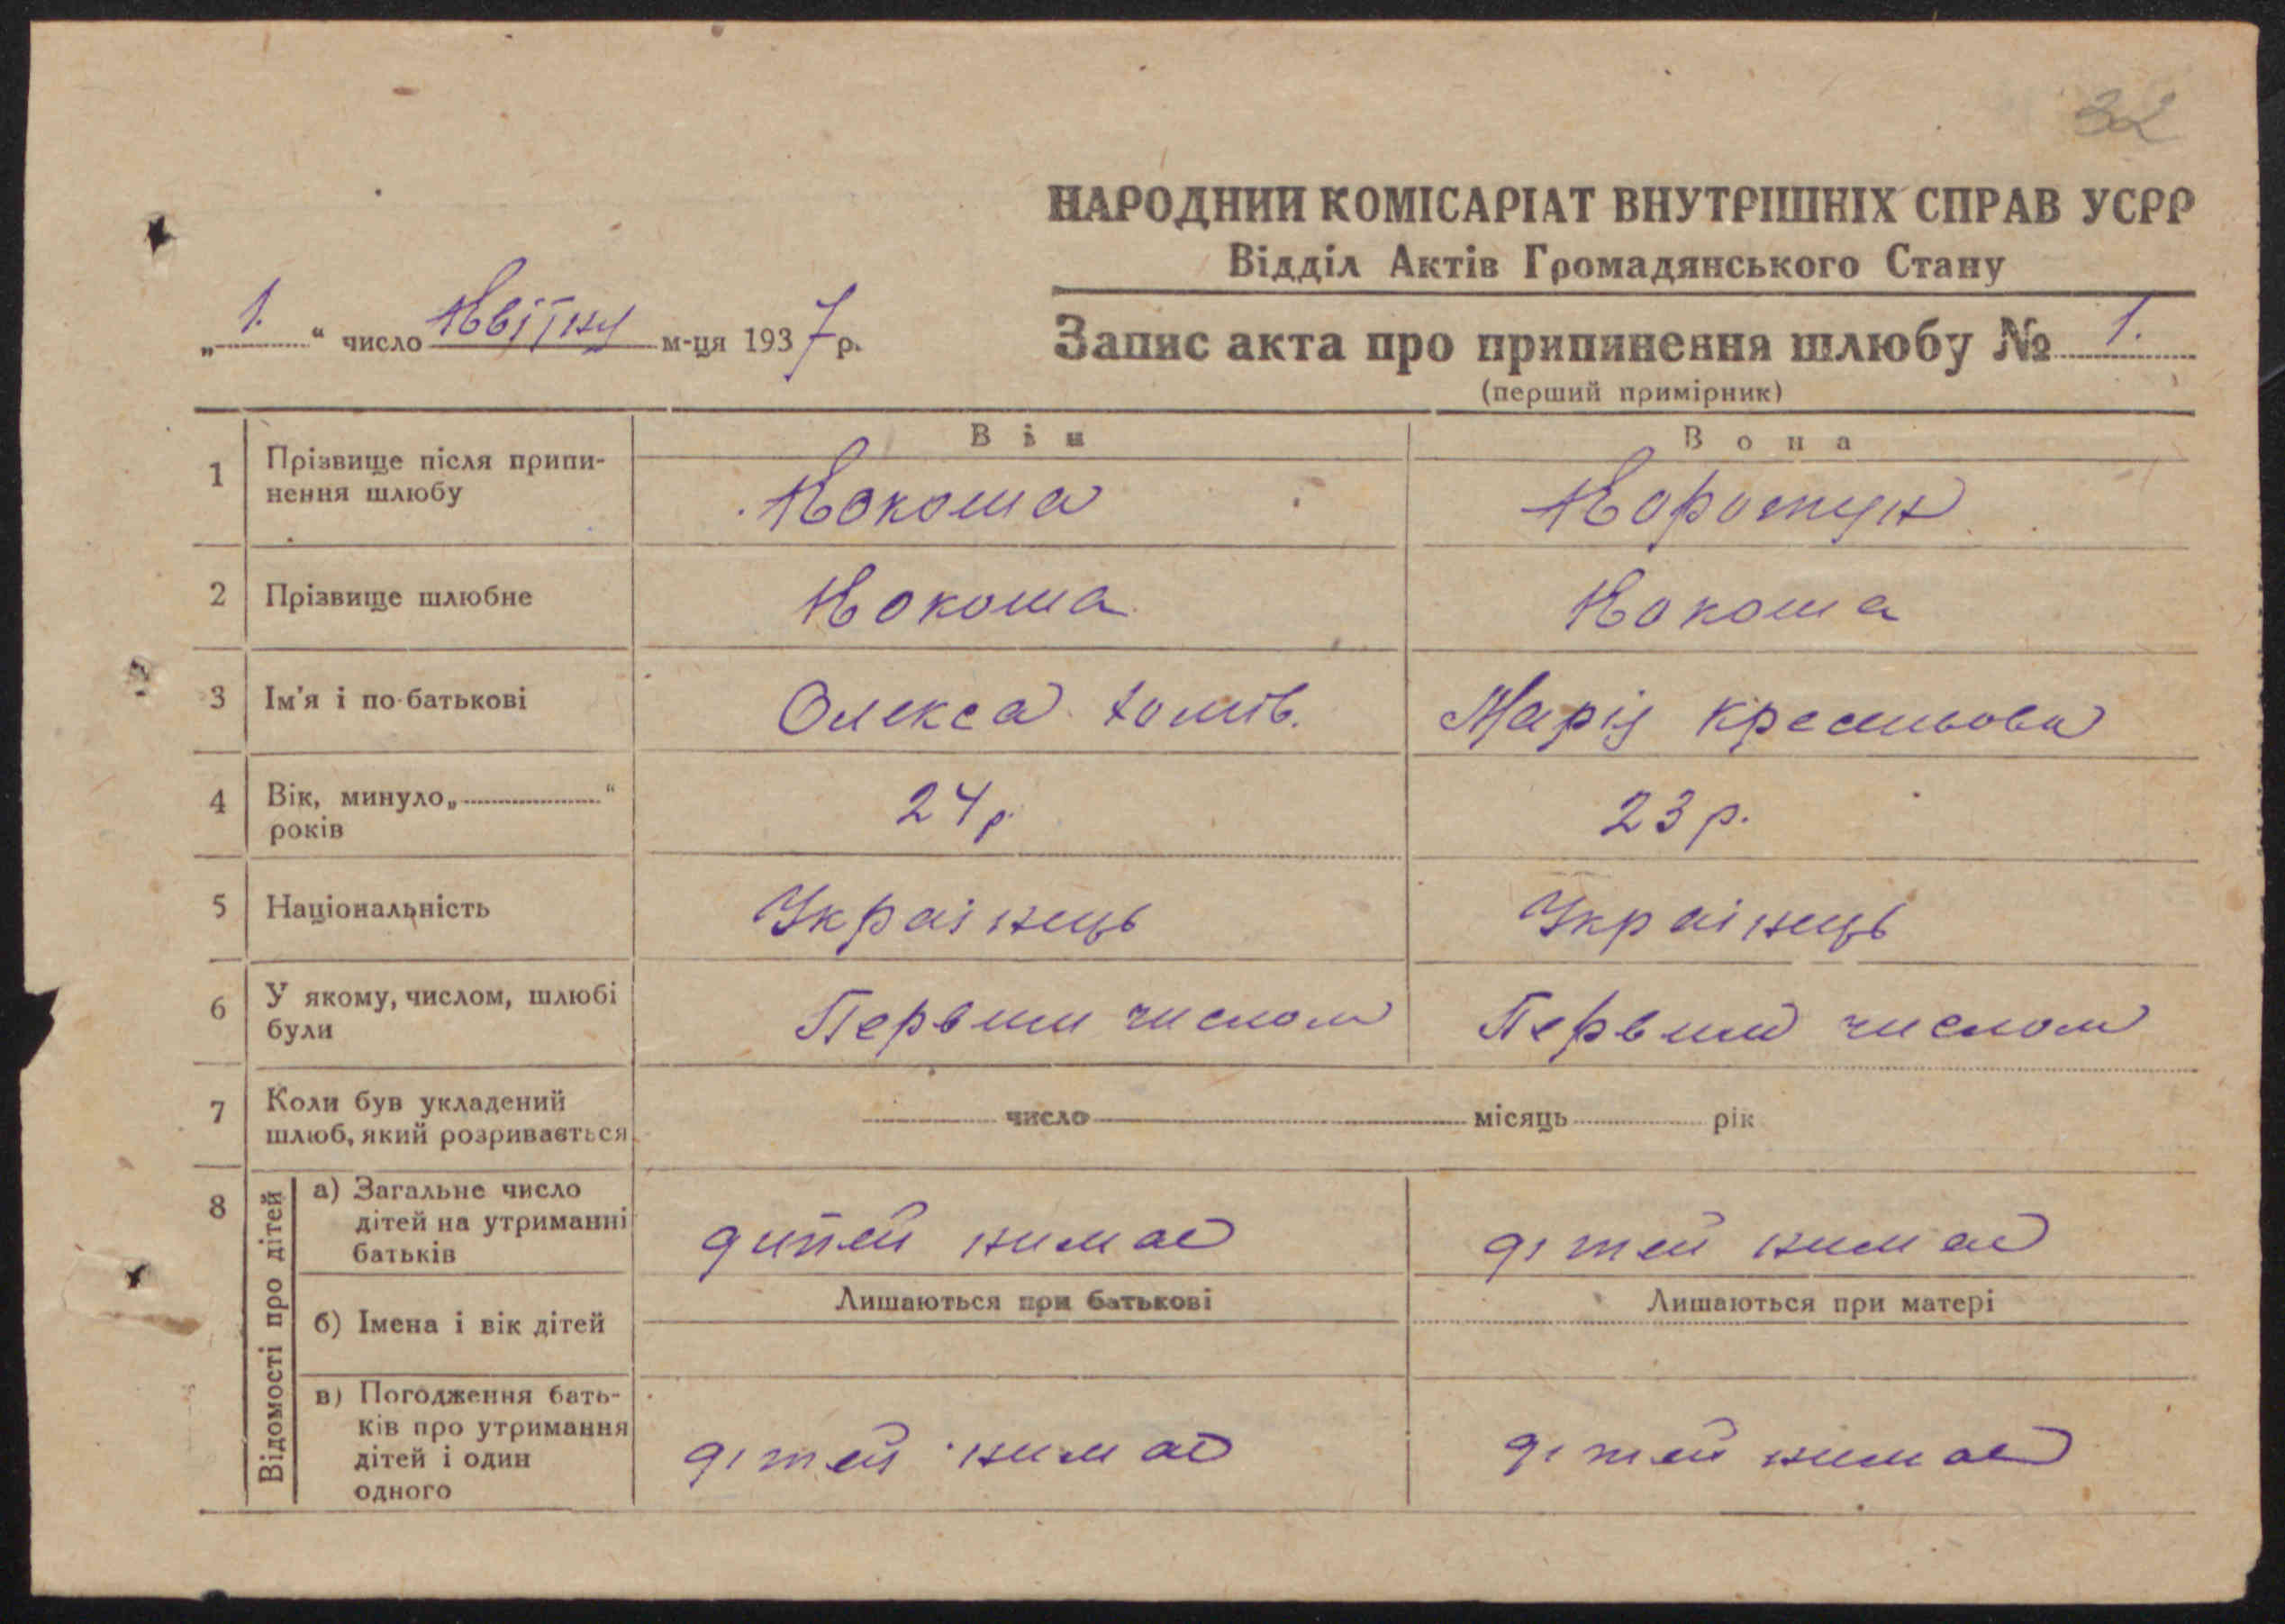 32
НАРОДНИЙ КОМІСАРІАТ ВНУТРІШНІХ СПРАВ УСРР
Відділ Актів Громадянського Стану
„ 1. “ число Квітня м-ця 1937 р.
Запис акта про припинення шлюбу № 1.
(перший примірник)
Він Вона
1 Прізвище після припи-
нення шлюбу Кокоша Коростун
2 Прізвище шлюбне Кокоша Кокоша
3 Ім'я і по-батькові Олекса Марія
4 Вік, минуло „ “
років 24 р. 23 р.
5 Національність Українець Українець
6 У якому, числом, шлюбі
були Первим числом Первим числом
7 Коли був укладений
шлюб, який розривається число місяць рік
8 Відомості про дітей
а) Загальне число
дітей на утриманні
батьків дитей нимає дітей нимає
б) Імена і вік дітей Лишаються при батькові Лишаються при матері
в) Погодження бать-
ків про утримання
дітей і один
одного дітей нимає дітей нимає